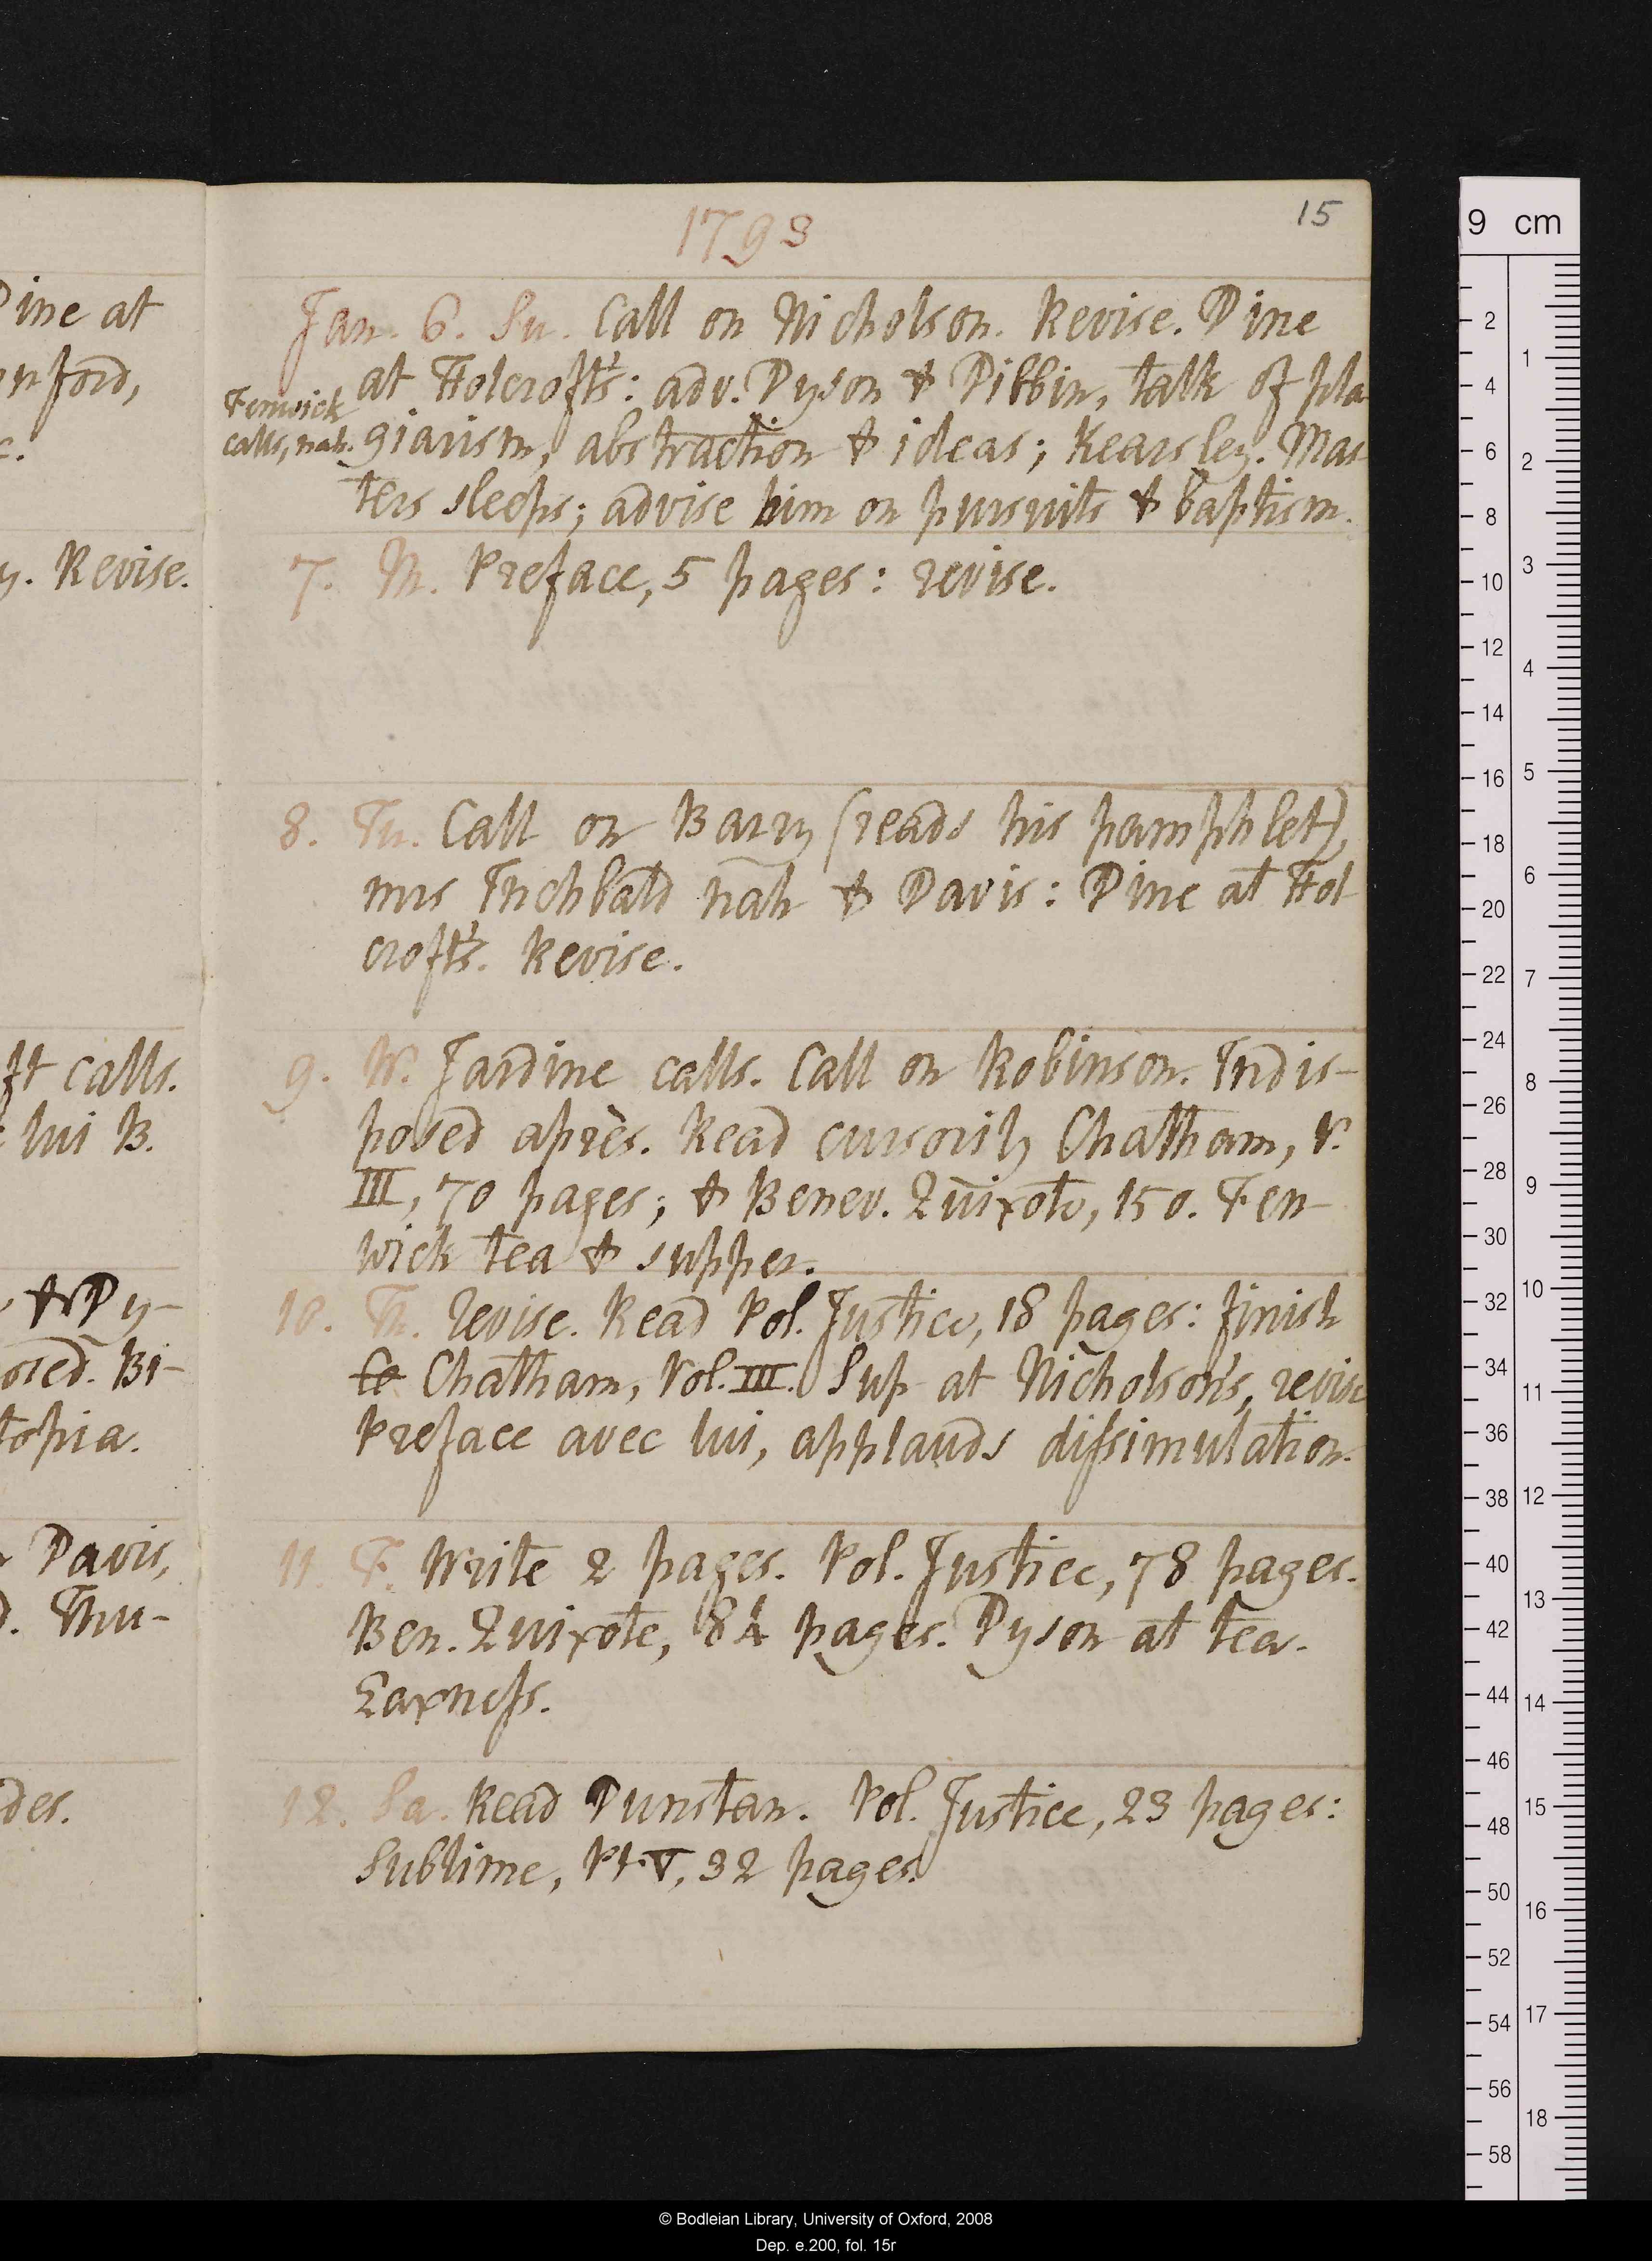 1793
15
Jan. 6. Su. Call on Nicholson. Revise. Dine
at Holcroft's: adv. Dyson & Dibbin, talk of pla
Fenwick
calls, nah.
giarism, abstraction & ideas; Kearsley. Mas
ters sleeps; advise him on pursuits & baptism.
7. M. Preface, 5 pages: revise.
8. Tu. Call on Barry (reads his pamphlet),
mrs Inchbald nah & Davis: Dine at Hol
croft's. Revise.
9. W. Jardine calls. Call on Robinson. Indis-
posed après. Read cursorily Chatham, V.
III, 70 pages; & Benev. Quixote, 150. Fen-
wick tea & supper.
10. Th. Revise. Read Pol. Justice, 18 pages: finish
Chatham, Vol. III. Sup at Nicholson's, revise
Preface avec lui, applauds dissimulation.
11. F. Write 2 pages. Pol. Justice, 78 pages.
Ben. Quixote, 84 pages. Dyson at tea.
Laxness.
12. Sa. Read Dunstan. Pol. Justice, 23 pages:
Sublime, Pt. V, 32 pages.
Dine at
nford,
c.
y. Revise.
ft calls.
lui B.
& Dy-
osed. Bi-
topia.
Davis,
d. Thu-
des.
9 cm
2
4
6
8
10
12
14
16
18
20
22
24
26
28
30
32
34
36
38
40
42
44
46
48
50
52
54
56
58
1
2
3
4
5
6
7
8
9
10
11
12
13
14
15
16
17
18
© Bodleian Library, University of Oxford, 2008
Dep. e.200, fol. 15r